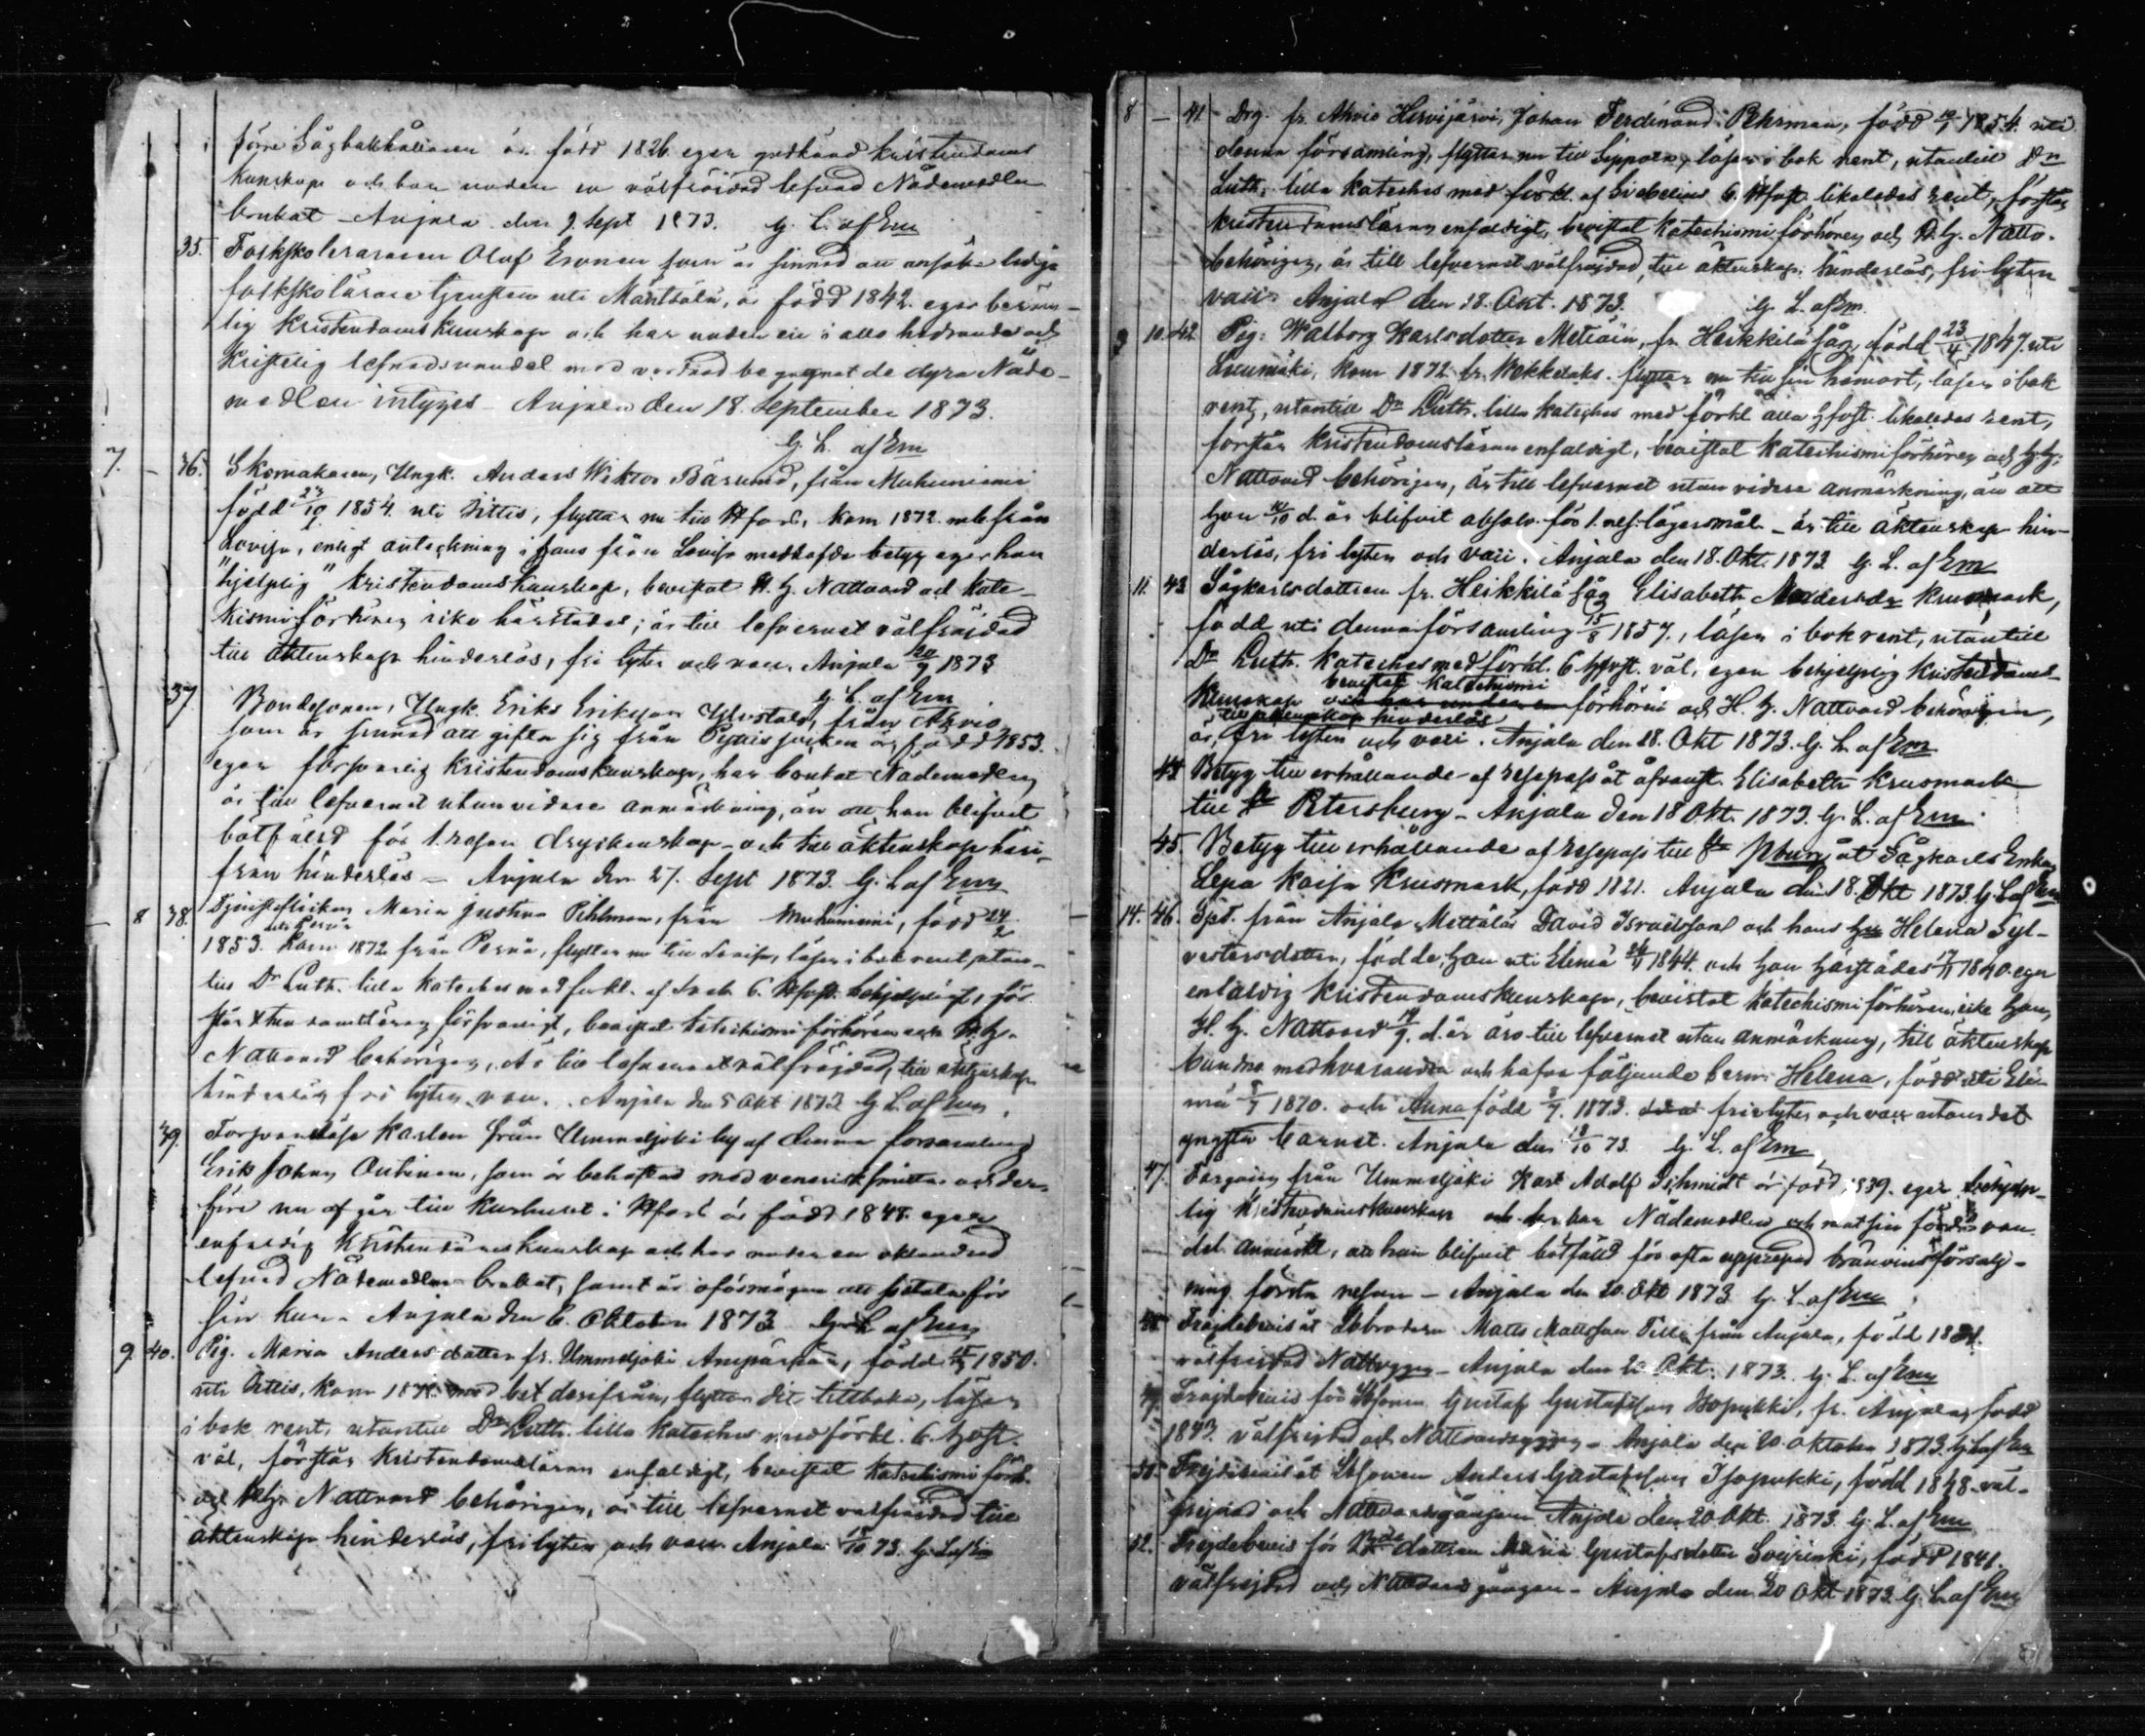 förre Sågbokhållaren är född 1826 eger godkänd kristendoms
kunskap och har under en välfrejdad lefnad Nådemedlen
brukat – Anjala den 9 Sept 1873. G. L. af Em
35. Folkskoleläraren Olof Eronen som är sinnad att ansöka lediga
folkskolärare tjensten uti Mäntsälä, är född 1842. eger beröm-
lig Kristendomskunskap och har under en i allo hedrande och
Kristelig lefnadsvandel med vördnad begagnat de dyra Nåde-
medlen intygas – Anjala den 18. September 1873.
G. L. af Em
7. – 36. Skomakaren, Ungk. Anders Wiktor Bärlund, från Muhniemi
född 1854 uti Sittis, flyttar nu till Hfors, kom 1872. från
Lovisa, enligt anteckning i hans från Lovisa medhafda betyg eger han
"hjelplig" Kristendomskunskap, bevistat H. H. Nattvard och Kate-
kismiförhören icke härstädes; är till lefvernet välfrejdad
till äktenskap hinderlös, fri lyten och vacc. Anjala 20/9 1873
G. L. af Em
37. Bondesonen, Ungk. Eriks Eriksson från Ahvio
som är sinnad att gifta sig från Pyttis socken är född 1853.
eger försvarlig Kristendomskunskap, har brukat Nådemedlen
är till lefvernet utan vidare anmärkning, än att han blifvit
bötfälld för 1. resan dryckenskap – och till äktenskap häri-
från hinderlös – Anjala den 27. Sept 1873. G. L. af Em
8 38. Tjensteflickan Maria Gustava Pihlman, från Muhniemi, född 24/2
1853. Kom 1872 från Pernå, flyttar nu till Lovisa, läser i bok rent, utan-
till Dr Luth. lilla kateches med förkl. af 6. Hfst. behjelpligt, för-
står försvarligt, bevistat katechismi förhören och H. H.
Nattvard behörigen, är till lefvernet välfrejdad, till äktenskap
hinderlös fri lyten vacc. Anjala den 5 Okt 1873 G. L. af Em
39. Torparesöns Karlen från Ummeljoki by af denna församling
Erik Johan Outinen, som är behäftad med venerisk smitta och der-
före nu afgår till kurhuset i Hfors är född 1848. eger
enfaldig Kristendomskunskap och har under en oklandrad
lefnad Nådemedlen brukat, samt är oförmögen att betala för
sin kur. – Anjala den 6. Oktober 1873 G. L. af Em
9. 40. Pig. Maria Andersdotter fr. Ummeljoki, född 1850.
uti Sittis, kom 187 med bet. derifrån, flyttar dit tillbaka, läser
i bok rent, utantill Dr Luth. lilla Kateches med förkl. 6. Hfst.
väl, förstår Kristendomsläran enfaldigt, bevistat Katechismi förh.
och H. H. Nattvard behörigen, är till lefvernet välfrejdad till
äktenskap hinderlös, fri lyten och vacc. Anjala 18/10 73. G. L. af Em
8 – 41. Drg. fr. Ahvio Hirvijärvi, Johan Ferdinand Pehrman, född 1854. uti
denna församling, flyttar nu till Sippola, läser i bok rent, utantill Dr
Luth. lilla Kateches med förkl. af Svebelius 6. Hfst. likaledes rent, förstår
kristendomsläran enfaldigt, bevistat Katechismiförhören och H. H. Nattv.
behörigen, är till lefvernet välfrejdad, till äktenskap hinderlös, fri lyten
vacc. Anjala den 18. Okt. 1873. G. L. af Em.
9 10. 42 Pig: Walborg Karlsdotter Metiäin, fr. Heikkilä såg, född 23/4 1847. uti
Luumäki, kom 1872 fr. Wekkelaks. flyttar nu till sin hemort, läser i bok
rent, utantill Dr Luth. lilla Kateches med förkl alla Hfst. likaledes rent,
förstår Kristendomsläran enfaldigt, bevistat Katechismiförhören och H. H.
Nattvard behörigen, är till lefvernet utan vidare anmärkning, än att
hon d. är blifvit absolv. för 1. res. lägersmål – är till äktenskap hin-
derlös, fri lyten och vacc. Anjala den 18. Okt. 1873 G. L. af Em
11. 43 Sågkarlsdottren fr. Heikkilä såg Elisabeth Andersdr Krusmark,
född uti denna församling 15/8 1857., läser i bok rent, utantill
Dr Luth. Kateches med förkl. 6 Hfst. väl, eger behjelplig Kristendoms-
bevistat Katechismi
kunskap och har under en förhören och H. H. Nattvard behörigen,
till äktenskap hinderlös
är, fri lyten och vacc. Anjala den 18. Okt 1873. G. L. af Em
44 Betyg till erhållande af respass åt åfvanst. Elisabeth Krusmark
till St Petersburg – Anjala den 18 Okt. 1873. G. L. af Em
45. Betyg till erhållande af respass till St Pburg åt Sågkarls Enkan
Lena Kaisa Krusmark, född 1821. Anjala den 18. Okt 1873. G. L. af Em
14. 46. Spst. från Anjala Mettälä David Israelsson och hans Hu Helena Syl-
vestersdotter, födde, han uti Elimä 1844. och hon härstädes 1840. eger
enfaldig Kristendomskunskap, bevistat Katechismiförhören, icke hon,
H. H. Nattvard d. år äro till lefvernet utan anmärkning, till äktenskap
bundna med hvarandra och hafva följande barn: Helena, född uti Eli-
mä 1870. och Anna född 1873. fri lyten och vacc. utom det
yngsta barnet. Anjala den 18/10 73. G. L. af Em
47. Torparen från Ummeljoki Karl Adolf Schmidt är född 1839. eger behjelp-
lig Kristendomskunskap och har Nådemedlen
del. anmärkt, att han blifvit bötfälld för ofta upprepad bränvinsförsälj-
ning första resan – Anjala den 20. Okt 1873 G. L. af Em
48. Frejdebevis åt Matts Mattsson Tilli från Anjala, född
välfrejdad Nattvgg – Anjala den 20 Okt. 1873. G. L. af Em
49. Frejdebevis för Gustaf Gustafsson Isopukki, fr. Anjala, född
1843. välfrejdad och Nattvardsgg – Anjala den 20 Oktober 1873. G. L. af Em
50. Frejdebevis åt Anders Gustafsson Isopukki, född 1848. väl-
frejdad och Nattvardsgången. Anjala den 20. Okt. 1873. G. L. af Em
52. Frejdebevis för dottren Maria Gustafsdotter, född 1841.
välfrejdad och Nattvardsgången – Anjala den 20 Okt 1873. G. L. af Em